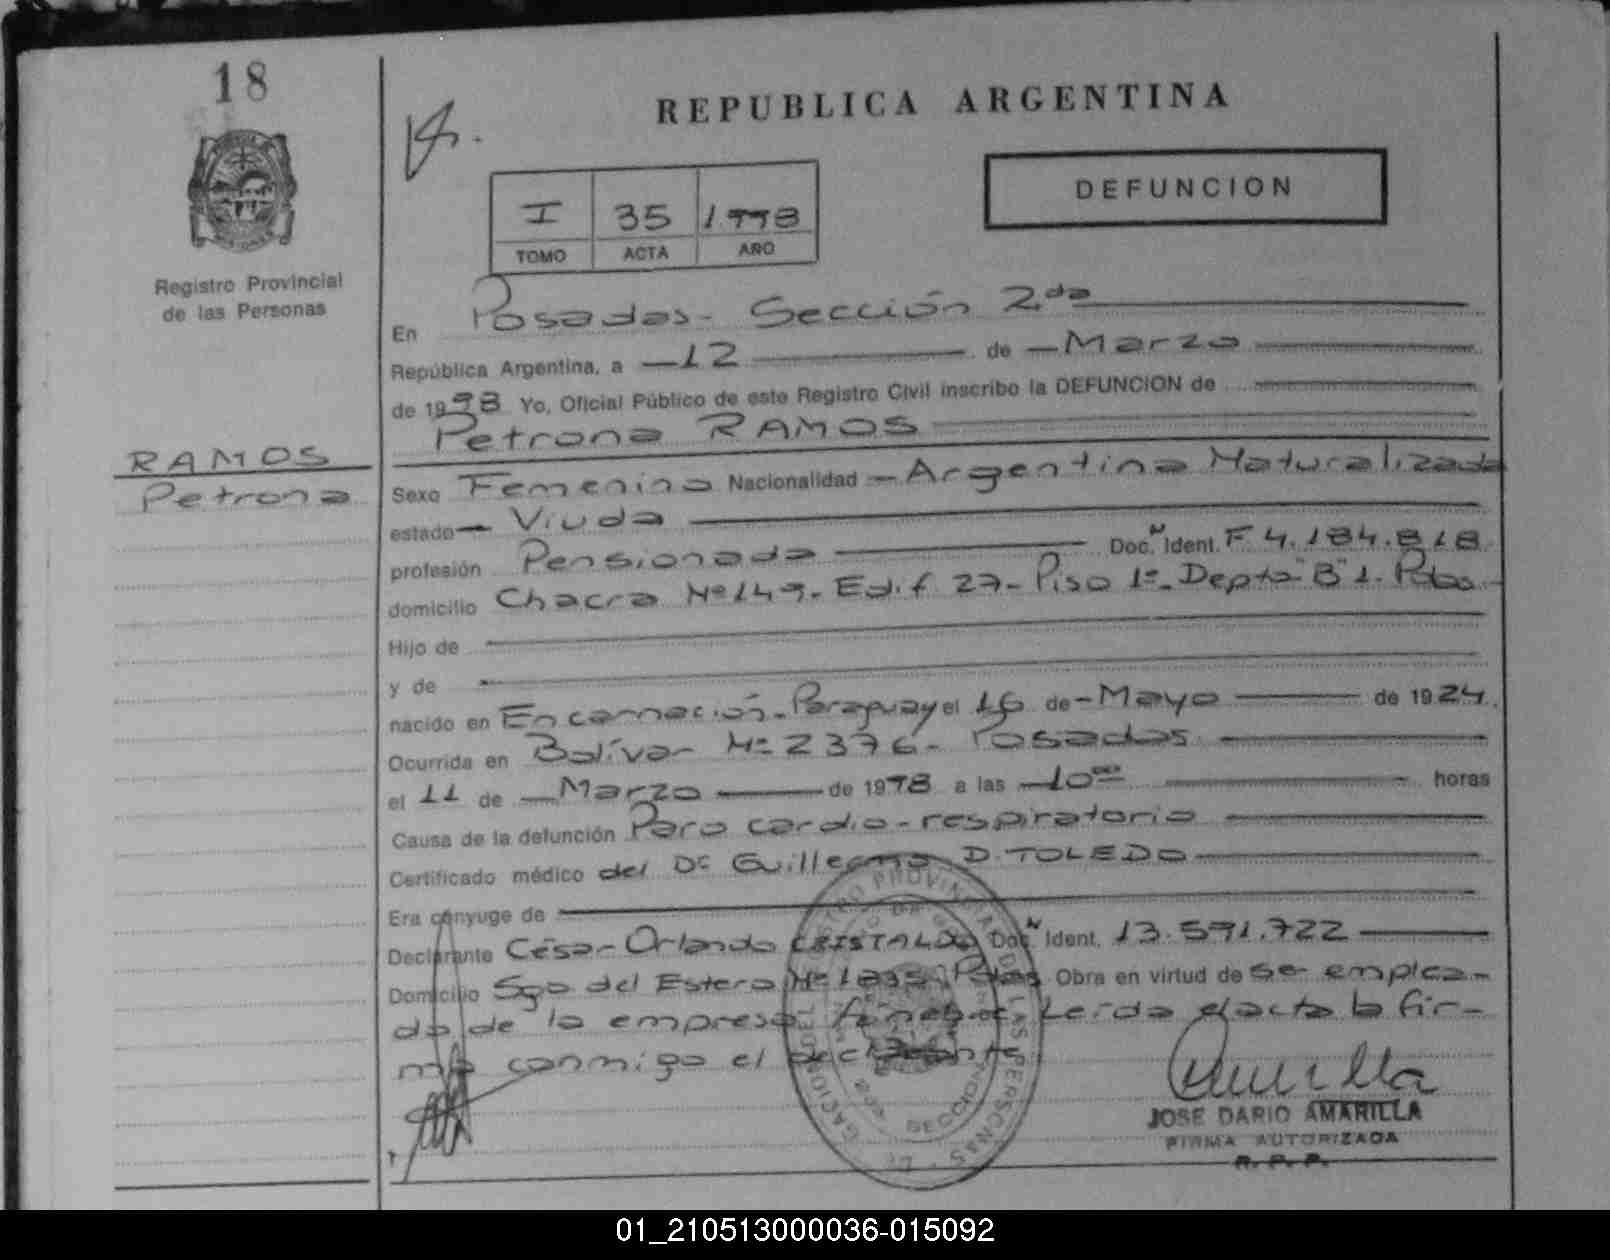 18
REPUBLICA ARGENTINA
DEFUNCION
I 35 1.998
TOMO ACTA AÑO
Registro Provincial
de las Personas
En Posadas - Sección 2da
República Argentina, a - 12 de - Marzo
de 1998 Yo, Oficial Público de este Registro Civil inscribo la DEFUNCION de
Petrona RAMOS
RAMOS
Petrona
Sexo Femenino Nacionalidad - Argentina Naturalizada
estado - Viuda
profesión Pensionada Doc. N Ident. F 4.184.818
domicilio Chacra Nº 149 - Edif 27 - Piso 1º - Depto "B" 1. Pdas
Hijo de
y de
nacido en Encarnación - Paraguay el 16 de - Mayo de 1924
Ocurrida en Bolívar Nº 2376 - Posadas
el 11 de - Marzo de 1998 a las - 10 horas
Causa de la defunción Paro cardio-respiratorio
Certificado médico del Dr Guillermo D. TOLEDO
Era cónyuge de
Declarante César Orlando CRISTALDO Doc. N Ident. 13.591.722
Domicilio Sgo del Estero Nº Pdas Obra en virtud de ser emplea-
do de la empresa fúnebre Leída el acta la fir-
ma conmigo el declarante
JOSE DARIO AMARILLA
FIRMA AUTORIZADA
R. P. P.
01_210513000036-015092